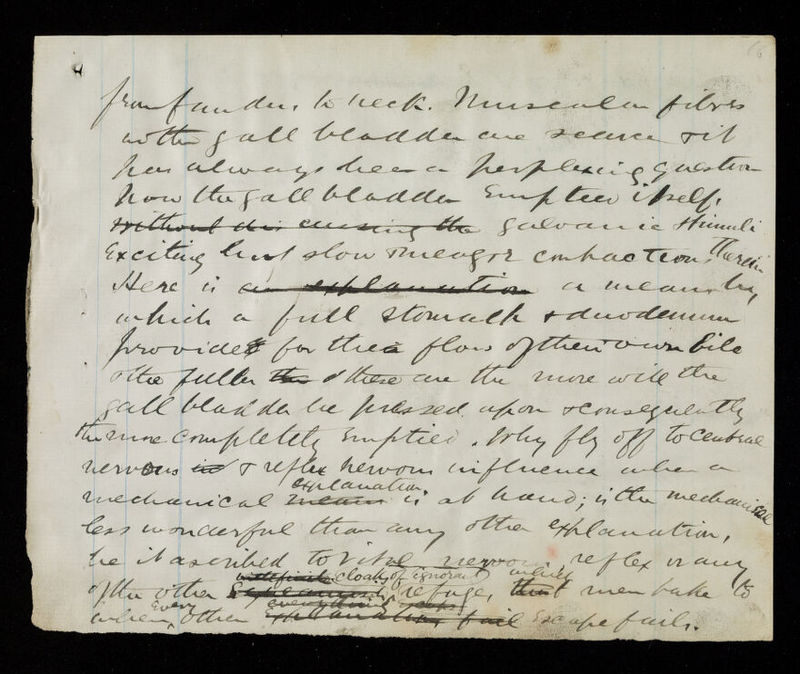 from fundus to neck. Muscular fibres
in the gall bladder are scarce & it
has always been a perplexing question
how the gall bladder Emptied itself,
without causing the galvanic stimuli
Exciting but slow & meagre contractions therein
Here is an explanation a means by
which a full stomach & duodenum
provides for the flow of their own bile
& the fuller these are the more will the
gall bladder be pressed upon & consequently
the more completely Emptied. Why fly off to central
nervous & reflex nervous influence when a
mechanical means explanation is at hand; is the mechanical
less wonderful than any other explanation,
be it ascribed to vital nervous, reflex or any
indefinite cloak of ignorant which
of the other refuge, that men take to
Every everything
when other explanation fail Escape fails.